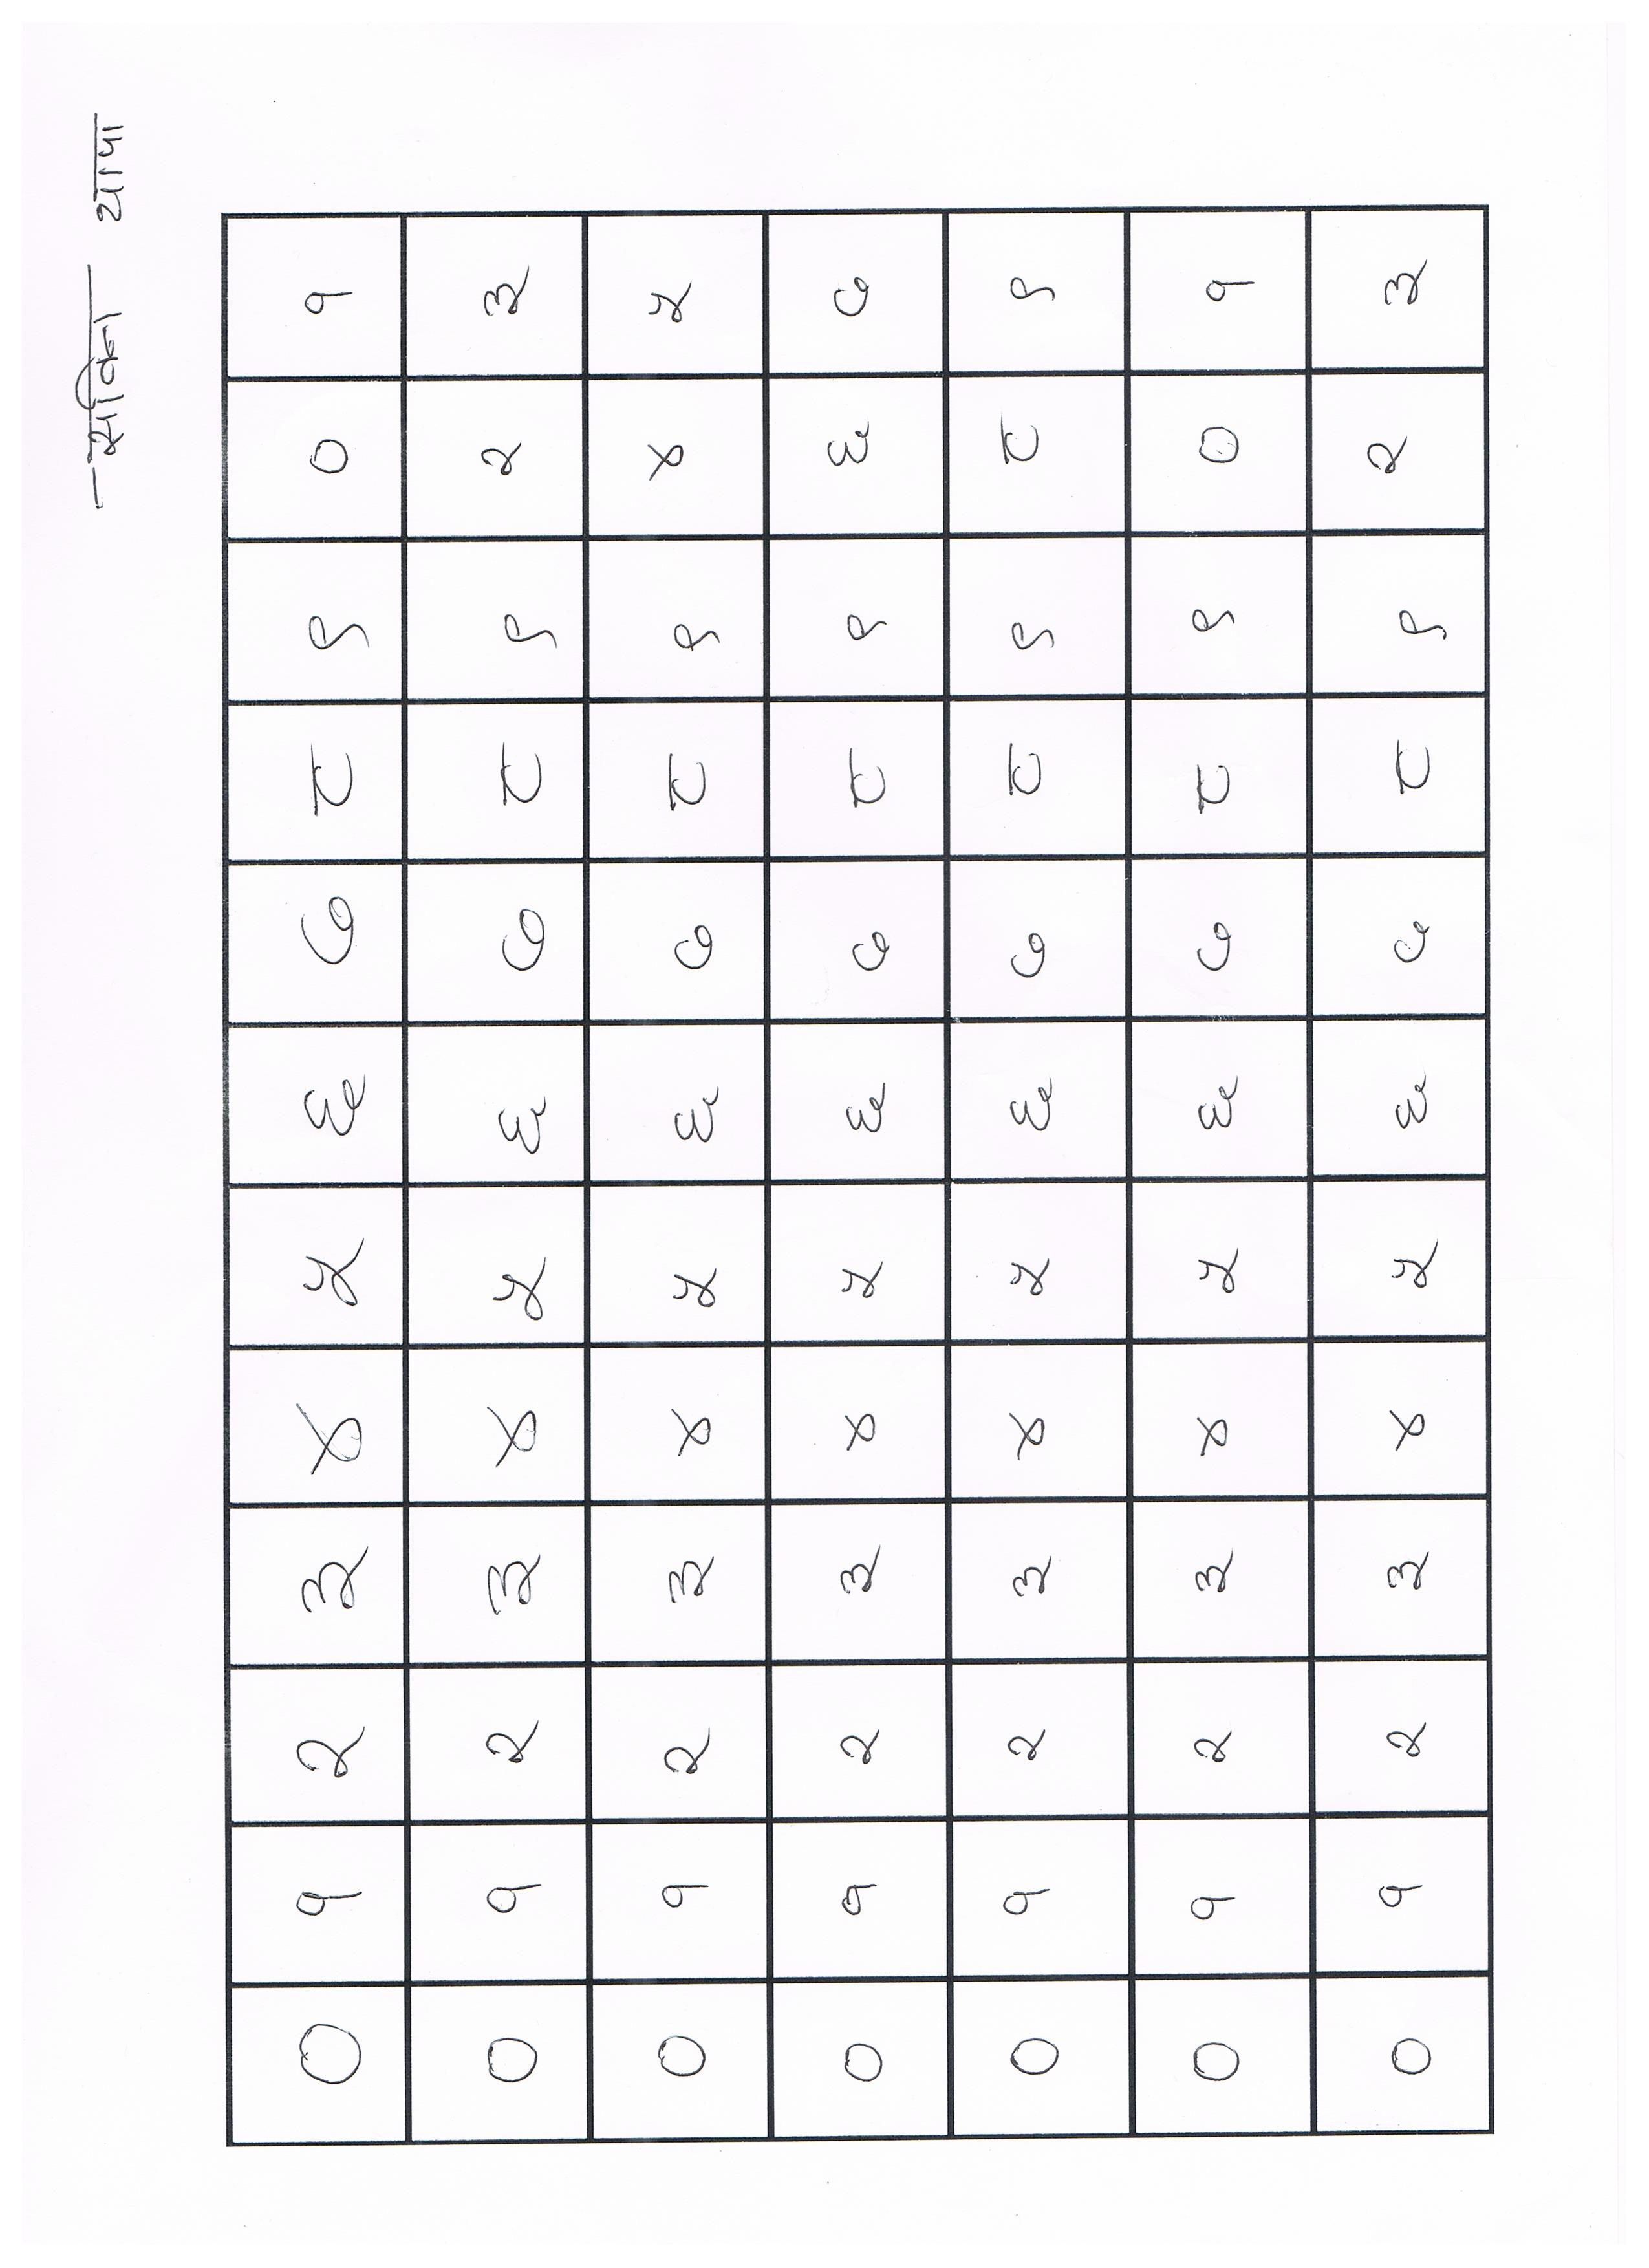 थापा
० १ २ ३ ४ ५ ६ ७ ८ ९ ० १
० १ २ ३ ४ ५ ६ ७ ८ ९ २ ३
० १ २ ३ ४ ५ ६ ७ ८ ९ ४ ५
० १ २ ३ ४ ५ ६ ७ ८ ९ ६ ७
० १ २ ३ ४ ५ ६ ७ ८ ९ ८ ९
० १ २ ३ ४ ५ ६ ७ ८ ९ ० १
० १ २ ३ ४ ५ ६ ७ ८ ९ २ ३